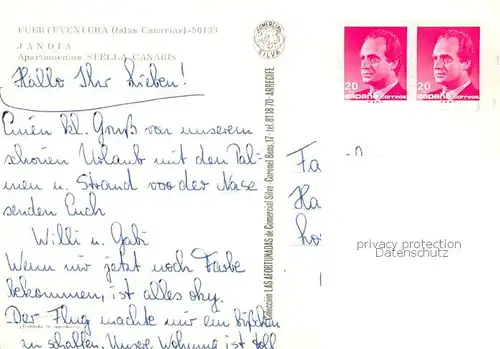 FUERTEVENTURA (Islas Canarias)-50133
JANDIA
Apartamentos STELLA CANARIS
Hallo Ihr Lieben!
Einen kl. Gruß von unserem
schönen Urlaub mit den Pal-
men u. Strand vor der Nase
senden Euch
Willi u. Gabi
Wenn wir jetzt noch Farbe
bekommen, ist alles oky.
Der Flug machte mir ein bißchen
zu schaffen. Unsere Wohnung ist toll
COMERCIAL
SILVA
Colección LAS AFORTUNADAS de Comercial Silva - Coronel Bens, 17 - tel. 81 18 70 - ARRECIFE
20
España correos
20
España correos
Fa
Ha
privacy protection
Datenschutz